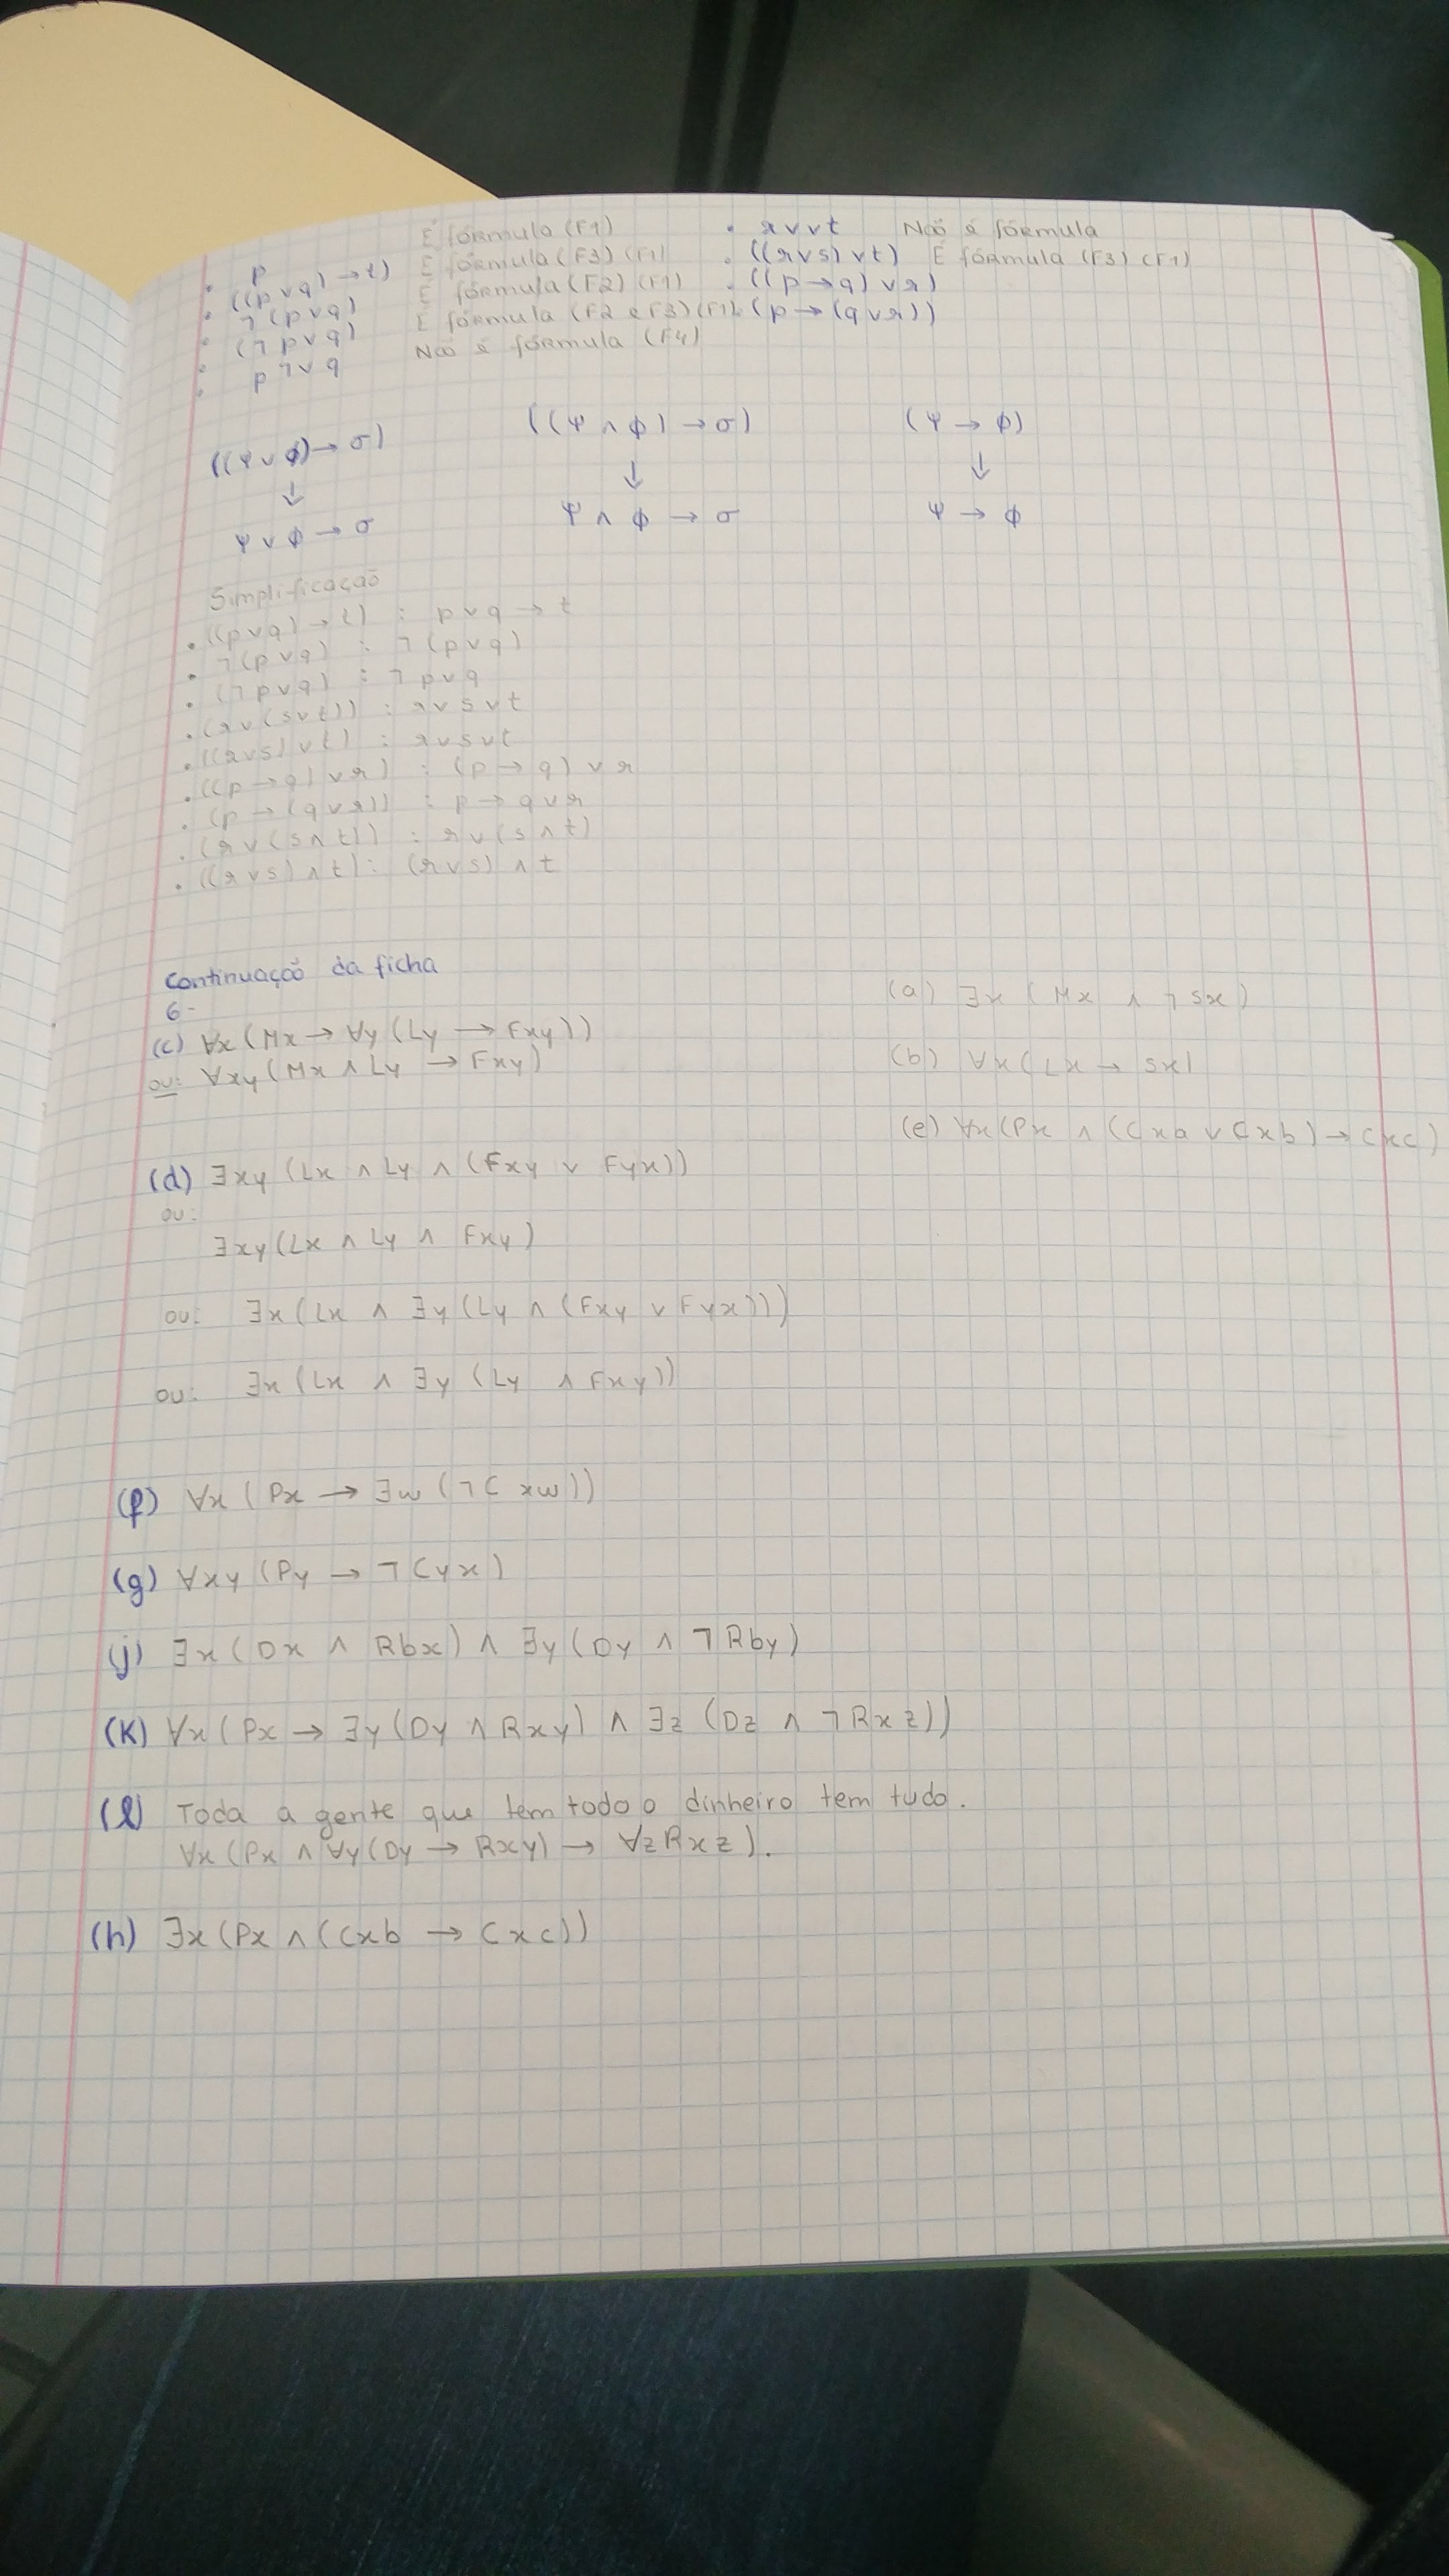 • p É fórmula (F1)
• ((p ∨ q) → t) É fórmula (F3) (F1)
• ¬(p ∨ q) É fórmula (F2) (F1)
• (¬p ∨ q) É fórmula (F2 e F3) (F1)
• p ¬∨ q Não é fórmula (F4)
• r ∨ ∨ t Não é fórmula
• ((r ∨ s) ∨ t) É fórmula (F3) (F1)
• ((p → q) ∨ r)
(p → (q ∨ r))
((Ψ ∨ ϕ) → σ) ((Ψ ∧ ϕ) → σ) (Ψ → ϕ)
↓ ↓ ↓
Ψ ∨ ϕ → σ Ψ ∧ ϕ → σ Ψ → ϕ
Simplificação
• ((p ∨ q) → t) : p ∨ q → t
• ¬(p ∨ q) : ¬(p ∨ q)
• (¬p ∨ q) : ¬p ∨ q
• (r ∨ (s ∨ t)) : r ∨ s ∨ t
• ((r ∨ s) ∨ t) : r ∨ s ∨ t
• ((p → q) ∨ r) : (p → q) ∨ r
• (p → (q ∨ r)) : p → q ∨ r
• (r ∨ (s ∧ t)) : r ∨ (s ∧ t)
• ((r ∨ s) ∧ t) : (r ∨ s) ∧ t
Continuação da ficha
6-
(c) ∀x (Mx → ∀y (Ly → Fxy))
ou: ∀xy (Mx ∧ Ly → Fxy)
(a) ∃x (Mx ∧ ¬Sx)
(b) ∀x (Lx → Sx)
(e) ∀x (Px ∧ (Cxa ∨ Cxb) → Cxc)
(d) ∃xy (Lx ∧ Ly ∧ (Fxy ∨ Fyx))
ou:
∃xy (Lx ∧ Ly ∧ Fxy)
ou: ∃x (Lx ∧ ∃y (Ly ∧ (Fxy ∨ Fyx)))
ou: ∃x (Lx ∧ ∃y (Ly ∧ Fxy))
(f) ∀x (Px → ∃w (¬C xw))
(g) ∀xy (Py → ¬Cyx)
(j) ∃x (Dx ∧ Rbx) ∧ ∃y (Dy ∧ ¬Rby)
(K) ∀x (Px → ∃y (Dy ∧ Rxy) ∧ ∃z (Dz ∧ ¬Rxz))
(l) Toda a gente que tem todo o dinheiro tem tudo.
∀x (Px ∧ ∀y (Dy → Rxy) → ∀z Rxz).
(h) ∃x (Px ∧ (Cxb → Cxc))